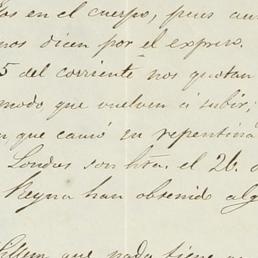 os en el cuerpo, pues au
nos dicen por el expreso.
5 del corriente nos quotan
modo que vuelven á subir;
n que causó su repentina
Londres son hta. el 26. d
Reyna han obtenido alg
que nada tiene